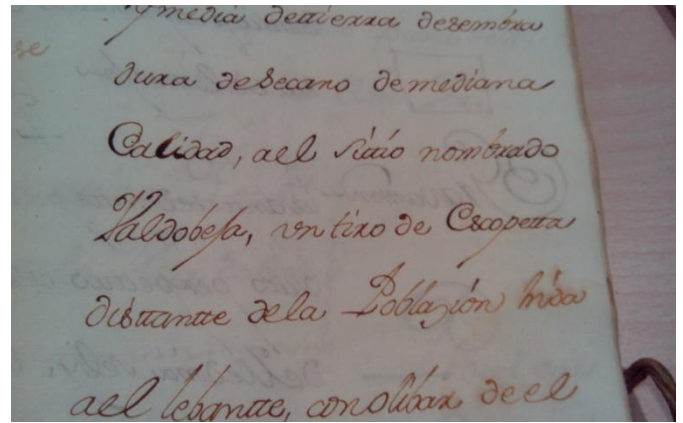 y media detierra desembra
dura desecano demediana
Calidad, ael sitio nombrado
Valdobesa, untiro de Escopetta
disttantte dela Poblazión linda
ael lebantte, conolibar de el